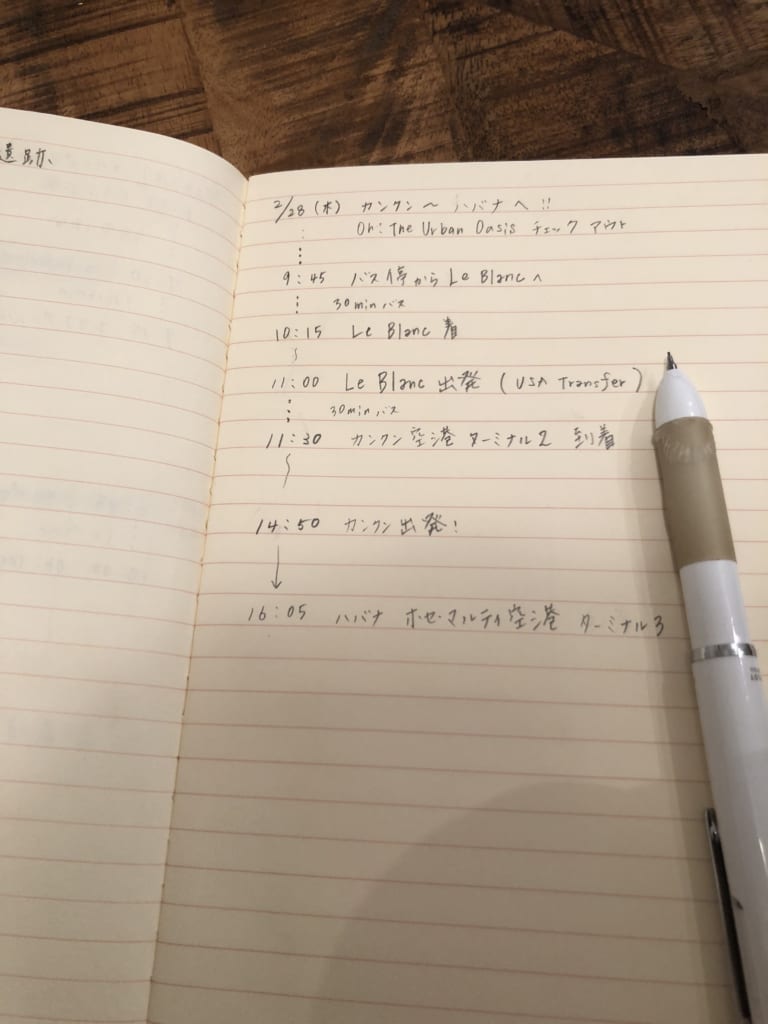 遺跡、
2/28 (木) カンクン〜 ハバナへ!!
Oh! The Urban Oasis チェック アウト
9:45 バス停から Le Blancへ
30min バス
10:15 Le Blanc 着
11:00 Le Blanc 出発 (USA Transfer)
30min バス
11:30 カンクン空港 ターミナル2 到着
14:50 カンクン出発!
16:05 ハバナ ホセ・マルティ空港 ターミナル3